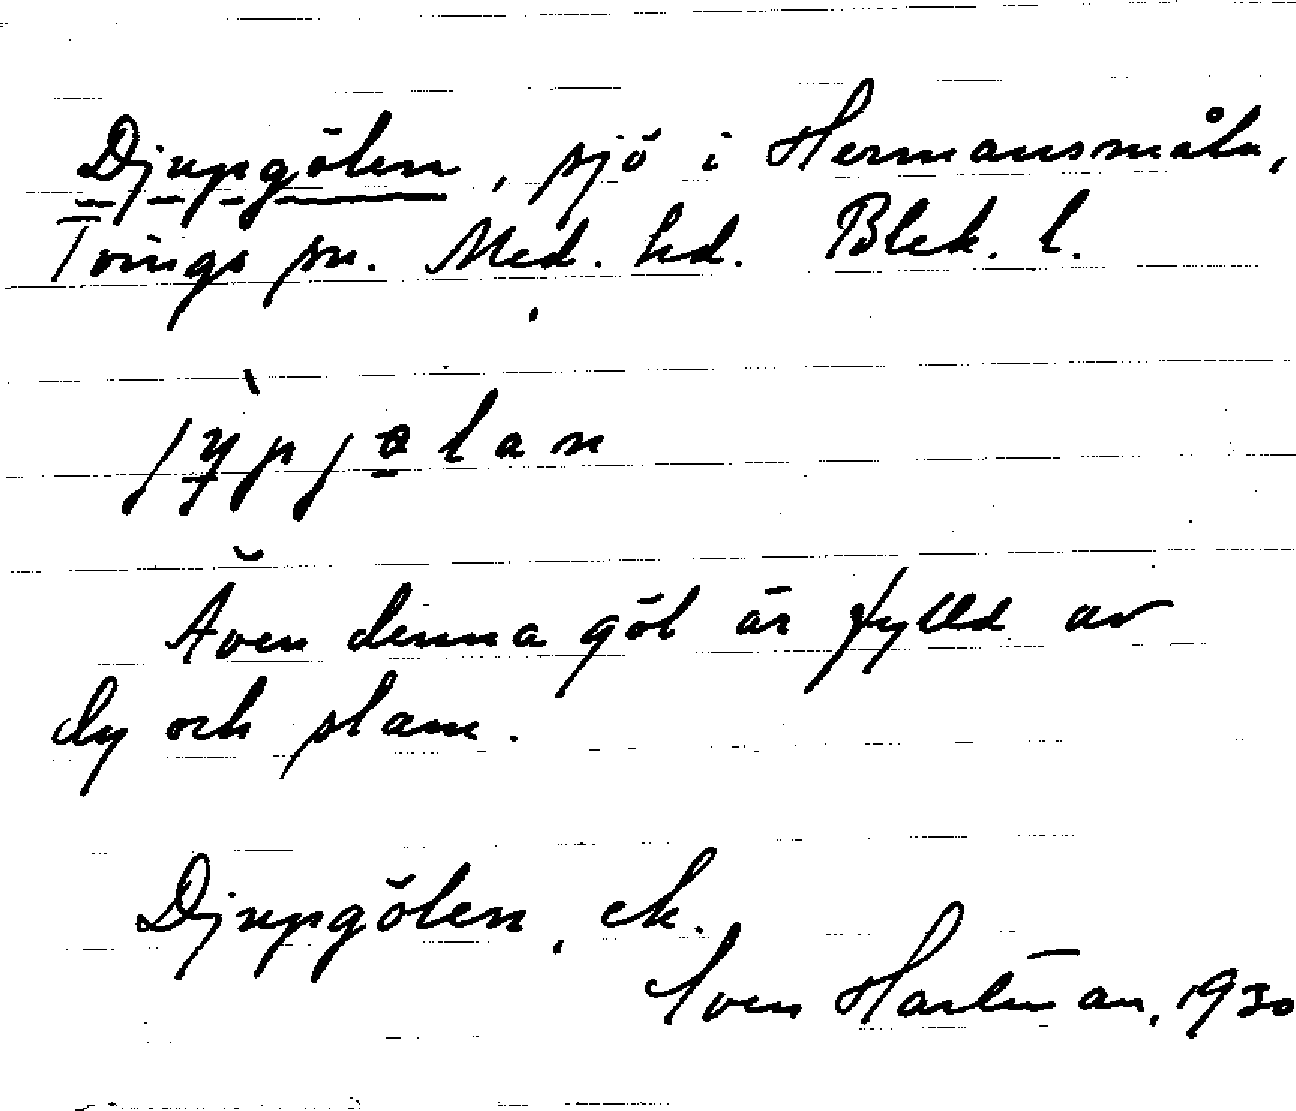 Djupgölen, sjö i Hermansmåla,
Tvings sn. Med. hd. Blek. l.
jỳpjølan
Även denna göl är fylld av
dy och slam.
Djupgölen, ek.
Sven Hartman, 1930